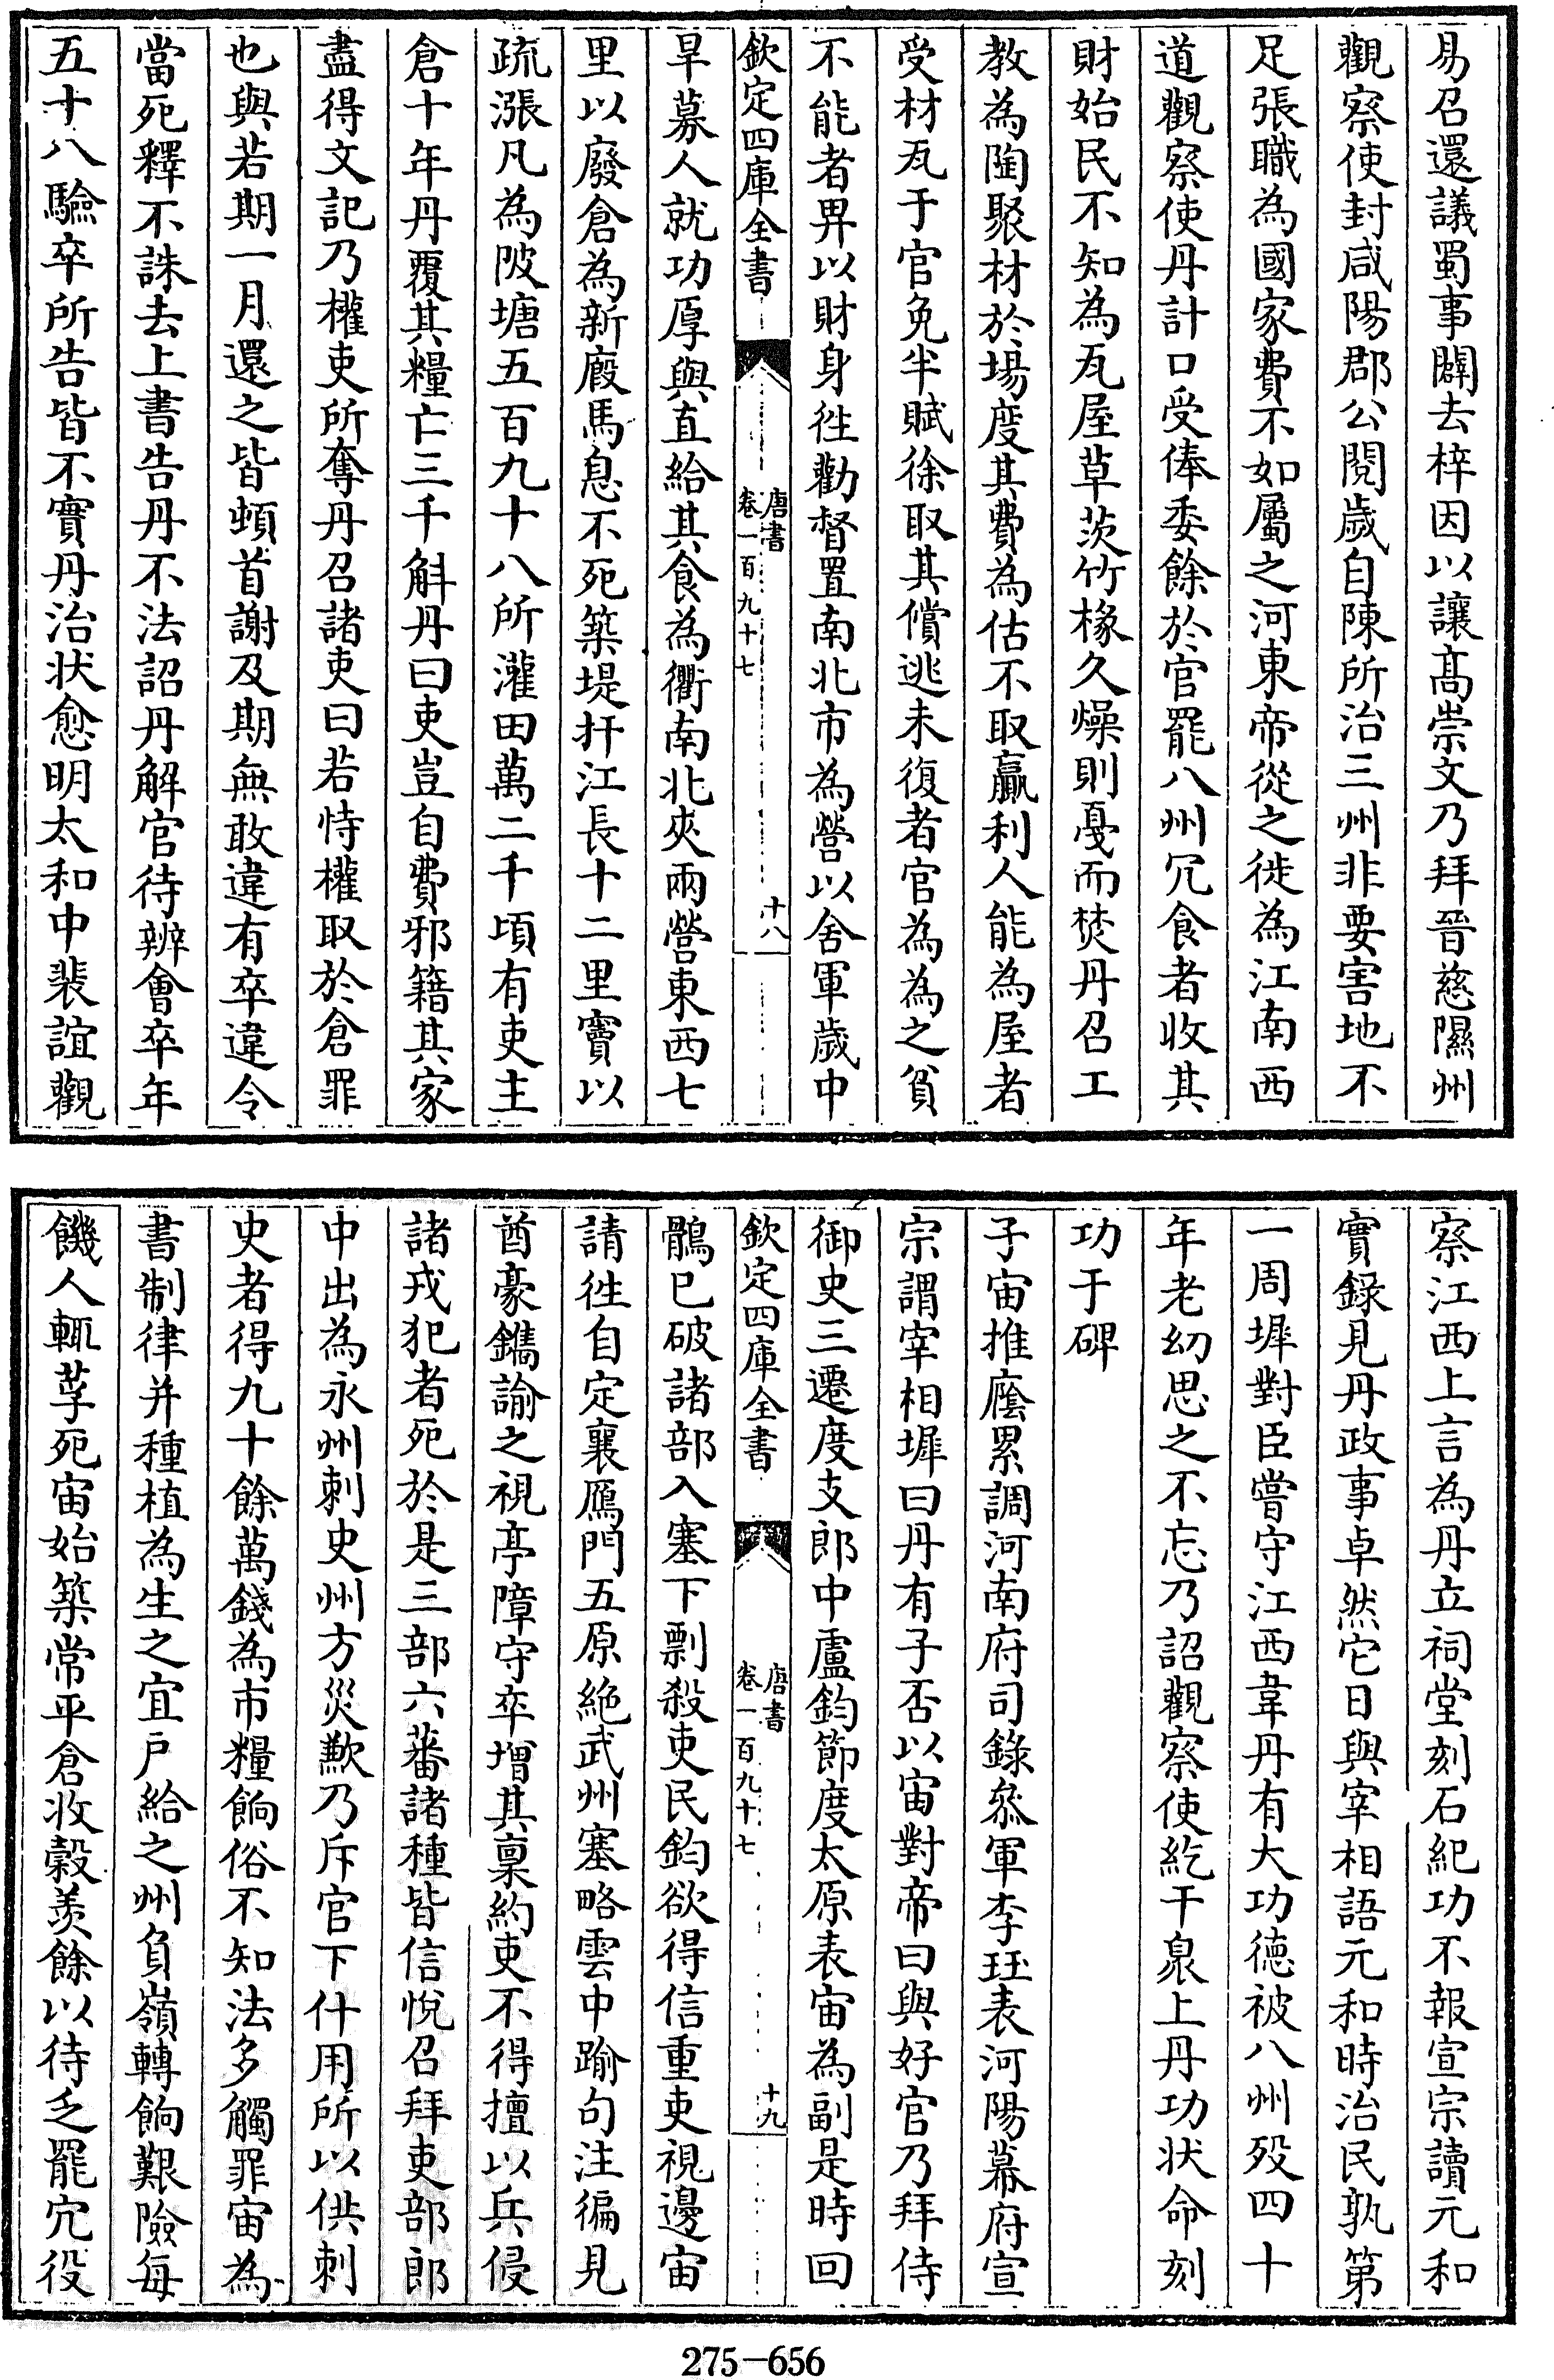 易召還議蜀事闢去梓因以讓髙崇文乃拜晉慈隰州
觀察使封咸陽郡公閱歲自陳所治三州非要害地不
足張職為國家費不如屬之河東帝從之徙為江南西
道觀察使丹計口受俸委餘於官罷八州冗食者收其
財始民不知為瓦屋草茨竹椽久燥則戞而焚丹召工
教為陶聚材於場度其費為估不取贏利人能為屋者
受材瓦于官免半賦徐取其償逃未復者官為為之貧
不能者畀以財身徃勸督置南北市為營以舍軍歲中
欽定四庫全書
唐書
卷一百九十七
十八
旱募人就功厚與直給其食為衢南北夾兩營東西七
里以廢倉為新廐馬息不死築堤扞江長十二里竇以
疏漲凡為陂塘五百九十八所灌田萬二千頃有吏主
倉十年丹覆其糧亡三千斛丹曰吏豈自費邪籍其家
盡得文記乃權吏所奪丹召諸吏曰若恃權取於倉罪
也與若期一月還之皆頓首謝及期無敢違有卒違令
當死釋不誅去上書告丹不法詔丹解官待辨會卒年
五十八驗卒所告皆不實丹治狀愈明太和中裴誼觀
察江西上言為丹立祠堂刻石紀功不報宣宗讀元和
實錄見丹政事卓然它日與宰相語元和時治民孰第
一周墀對臣嘗守江西韋丹有大功德被八州殁四十
年老幼思之不忘乃詔觀察使紇干臮上丹功狀命刻
功于碑
子宙推廕累調河南府司錄叅軍李珏表河陽幕府宣
宗謂宰相墀曰丹有子否以宙對帝曰與好官乃拜侍
御史三遷度支郎中盧鈞節度太原表宙為副是時回
欽定四庫全書
唐書
卷一百九十七
十九
鶻已破諸部入塞下剽殺吏民鈞欲得信重吏視邊宙
請徃自定襄鴈門五原絶武州塞略雲中踰句注徧見
酋豪鐫諭之視亭障守卒增其稟約吏不得擅以兵侵
諸戎犯者死於是三部六蕃諸種皆信悅召拜吏部郎
中出為永州刺史州方災歉乃斥官下什用所以供刺
史者得九十餘萬錢為市糧餉俗不知法多觸罪宙為
書制律并種植為生之宜戶給之州負嶺轉餉艱險每
饑人輒莩死宙始築常平倉收榖羨餘以待乏罷冗役
275—656